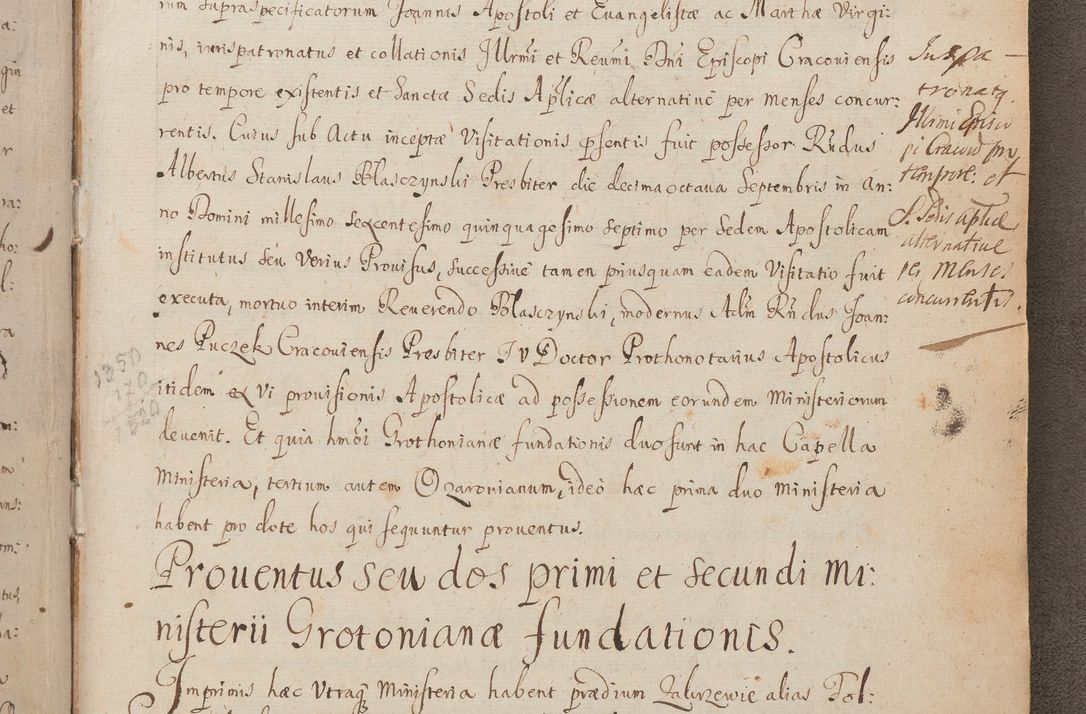 rum supraspecificatorum Joannis Apostoli et Euangelistæ ac Marthæ Virgi:
nis, iurispatronatus et collationis Illrmi et Reumi Dni Episcopi Cracouiensis
pro tempore existentis et Sanctæ Sedis Aplicæ alternatiuè per menses concur:
rentis. Cuius sub Actu inceptæ Visitationis psentis fuit possessor Rndus
Albertus Stanislaus Blasczynski Presbiter die decima octaua Septembris in An:
no Domini millesimo sexcentesimo quinquagesimo septimo per Sedem Apostolicam
institutus seu verius Prouisus, successiuè tamen priusquam eadem Visitatio fuit
executa, mortuo interim Reuerendo Blasczynski, modernus Adm Rndus Joan:
nes Puczek Cracouiensis Presbiter I V Doctor Prothonotarius Apostolicus
itidem ex vi prouisionis Apostolicæ ad possessionem eorundem Ministeriorum
deuenit. Et quia hmoi Grothonianæ fundationis duo sunt in hac Capella
Ministeria, tertium autem Ozarouianum, ideò hæc prima duo Ministeria
habent pro dote hos qui sequuntur prouentus.
Prouentus seu dos primi et secundi Mi:
nisterii Grotonianæ fundationis.
Imprimis hæc vtraq Ministeria habent prædium Zakrzewie alias Fol:
Juspa
tronatq
Illrmi Episco
pi Cracou pro
tempore: et
S. Sedis Aplicæ
alternatiue
per Menses
concurrentis.
1350
170
1520